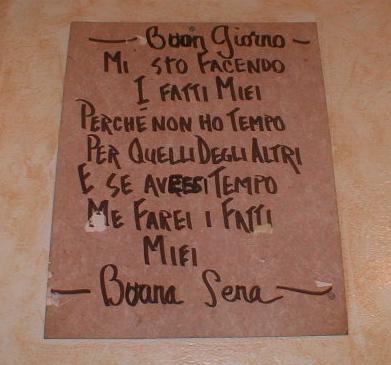 Buon Giorno
Mi sto facendo
I fatti miei
Perché non ho tempo
Per quelli degli altri
E se avessi tempo
Me farei i fatti
Miei
Buona Sera